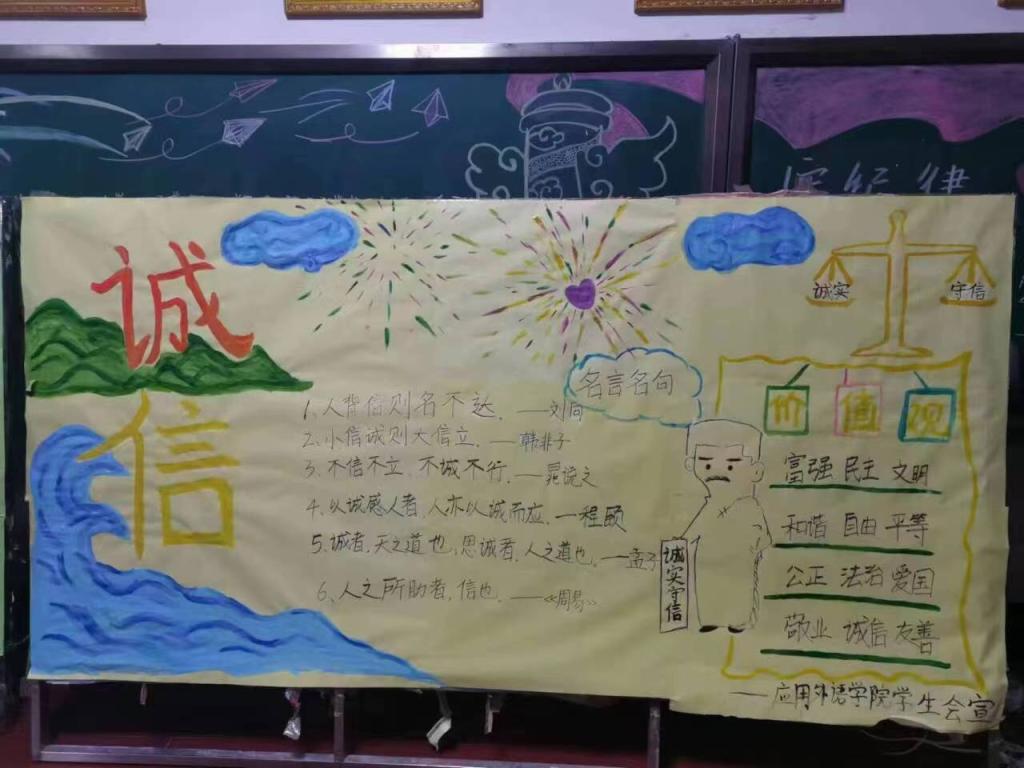 纪律
诚
信
诚实
守信
名言名句
1、人背信则名不达. ——刘向
2、小信诚则大信立. ——韩非子
3、不信不立、不城不行. ——晁说之
4、以诚感人者,人亦以诚而应. —程颐
5、诚者,天之道也,思诚者,人之道也. ——孟子
6、人之所助者,信也. ——《周易》
诚实守信
价值观
富强 民主 文明
和谐 自由 平等
公正 法治 爱国
敬业 诚信 友善
——应用外语学院学生会宣